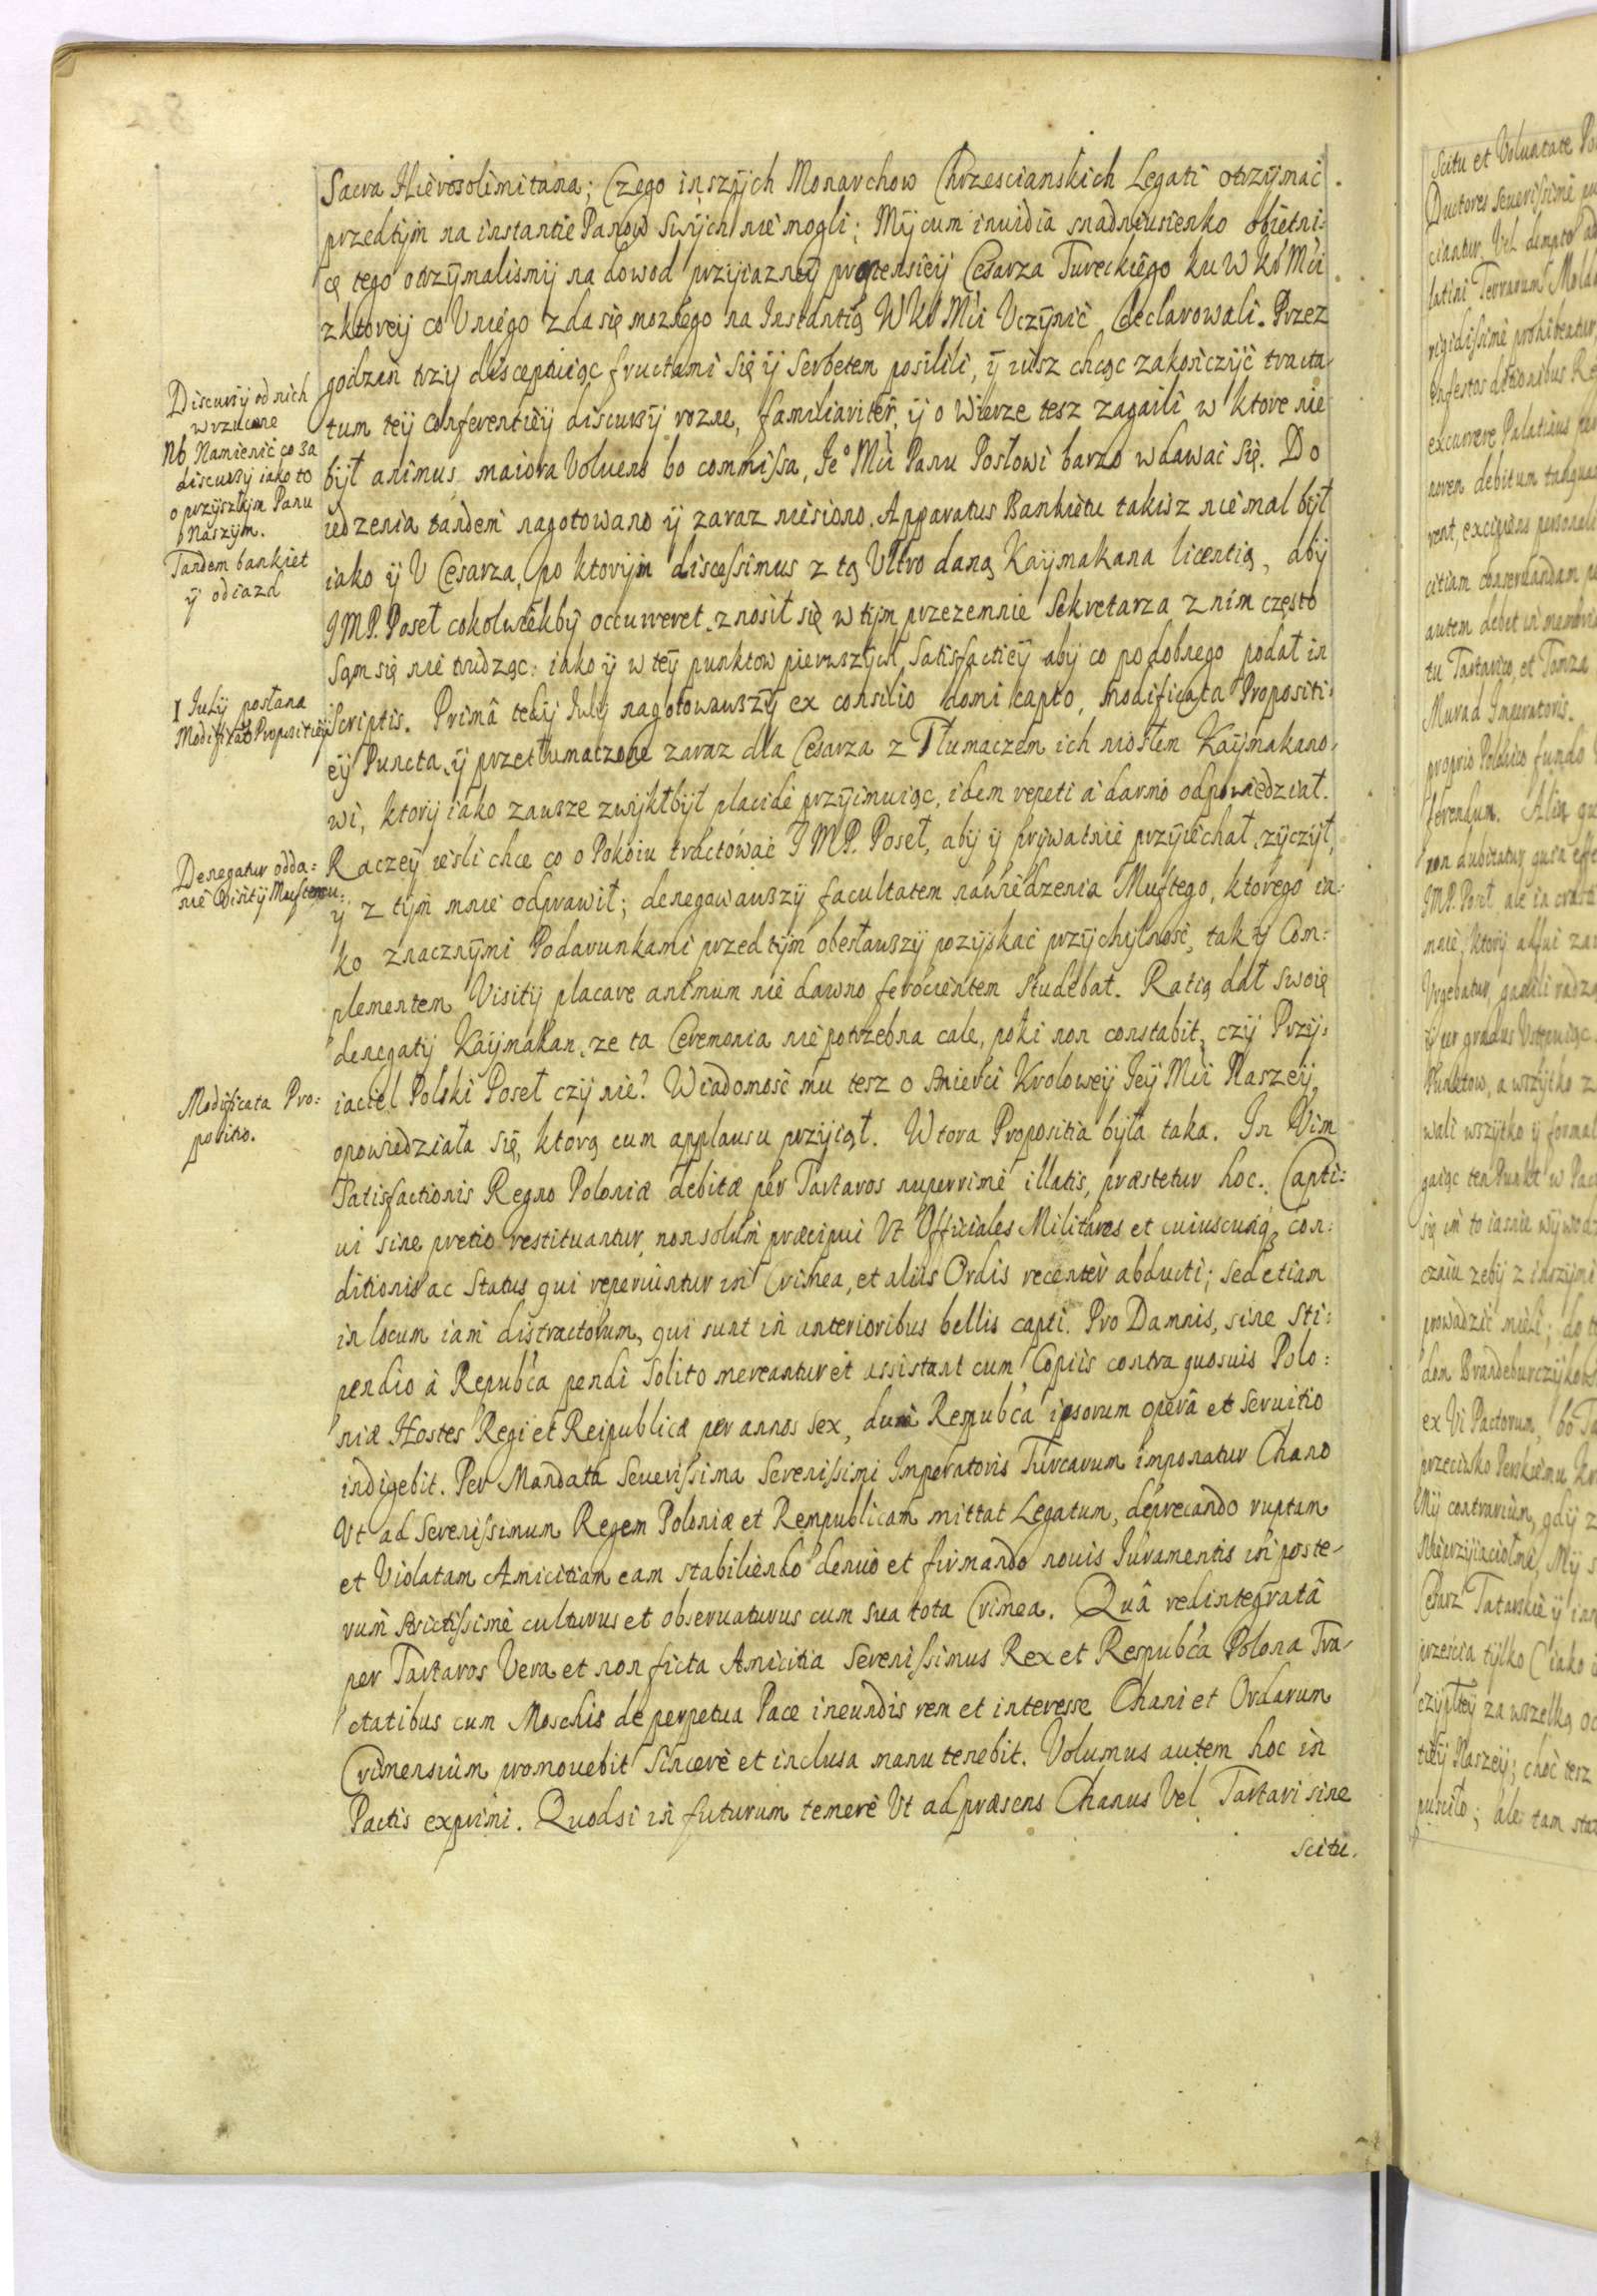 Sacra Hierosolimitana; Czego inszÿch Monarchow Chrzescianskich Legati otrzÿmac
przedtÿm na instantie Panow swÿch nie mogli; Mÿ cum inuidia snadniusienko obietni:
cę tego otrzÿmalismÿ na dowod przÿiazneÿ propensieÿ Cesarza Tureckiego ku W Kr Mći
z ktoreÿ co V niego zda się moznego na Instantią W Kr Mći Vczÿnić declarowali. Przez
godzin trzÿ disceptuiąc fructami się ÿ Serbetem posilili, ÿ iusz chcąc zakończÿć tracta-
tum teÿ Conferentieÿ discursÿ rozne, familiariter, ÿ o Wierze tesz zagaili w ktore nie
bÿł animus maiora Voluens bo commissa, Je° Mći Panu Posłowi barzo wdawać się. Do
iedzenia tandem nagotowano ÿ zaraz niesiono. Apparatus Bankietu takisz niemal bÿł
iako ÿ V Cesarza, po ktorÿm discessimus z tą Vltro daną Kaÿmakana licentią, abÿ
J M P. Poseł cokolwiekbÿ occurreret, znosił się w tÿm przezemnie Sekretarza z nim często
Sąm się nie trudząc: iako ÿ w teÿ punktow pierwszÿch, Satisfactieÿ abÿ co podobnego podał in
Scriptis. Primâ tedÿ Julÿ nagotowawszÿ ex consilio domi capto, modificata Propositi:
eÿ Puncta, ÿ przetłumaczone zaraz dla Cesarza z Tłumaczem ich niosłem Kaÿmakano-
wi, ktorÿ iako zawsze zwÿkł bÿł placidè przÿimuiąc, idem repeti a darmo odpowiedział.
Raczeÿ iesli chce co o Pokoiu tractować J M P. Poseł, abÿ ÿ prÿwatnie przÿiechał, zÿczÿł,
ÿ z tÿm mnie odprawił; denegowawszÿ facultatem nawiedzenia Muftego, ktorego ia-
ko znacznÿmi Podarunkami przed tÿm obesławszÿ pozÿskać przÿchÿlność, tak ÿ Com:
plementem Visitÿ placare animum nie dawno ferocientem Studebat. Ratią dał swoię
denegatÿ Kaÿmakan, ze ta Ceremonia nie potrzebna cale, poki non constabit, czÿ Przÿ:
iaciel Polski Poseł czÿ nie? Wiadomość mu tesz o Smierci Kroloweÿ Jeÿ Mći Naszeÿ,
opowiedziała się, ktorą cum applausu przÿiął. Wtora Propositia bÿła taka. In Vim
Satisfactionis Regno Poloniæ debitæ per Tartaros nuperrimè illatis, præstetur hoc. Capti:
ui sine pretio restituantur, non solùm præcipui Vt Officiales Militares et cuiuscunq; con:
ditionis ac Status qui reperiuntur in Crimea, et aliis Ordis recenter abducti; sed etiam
in locum iam distractorum, qui sunt in anterioribus bellis capti. Pro Damnis, sine Sti:
pendio à Repub'ca pendi solito mereantur et assistant cum Copiis contra quosuis Polo:
niæ Hostes Regi et Reipublicæ per annos sex, dum Respub'ca ipsorum operâ et Seruitio
indigebit. Per Mandata Seuerissima Serenissimi Imperatoris Turcarum imponatur Chano
Vt ad Serenissimum Regem Poloniæ et Rempublicam mittat Legatum, deprecando ruptam
et Violatam Amicitiam eam stabiliendo denuò et firmando nouis Juramentis in poste-
rum strictissimè culturus et obseruaturus cum sua tota Crimea. Quâ redintegratâ
per Tartaros Vera et non ficta Amicitia Serenissimus Rex et Respub'ca Polona Tra-
ctatibus cum Moschis de perpetua Pace ineundis rem et interesse Chani et Ordarum
Crimensium promouebit Sincerè et inclusa manu tenebit. Volumus autem hoc in
Pactis exprimi. Quodsi in futurum temerè Vt ad præsens Chanus Vel Tartari sine
scitu.
Discursÿ od nich
wrzucone
Nb Namienić co za
discursÿ iako to
o przÿszłÿm Panu
Naszÿm.
Tandem bankiet
ÿ odiazd
I Julÿ posłana
Modificata Propositieÿ
Denegatur odda:
nie Visitÿ Muftemu.
Modificata Pro:
positio.
Scitu et Voluntate
Ductores Seuerissimè
latini Terrarum
rigidissimè prohibeantur
infestos ditionibus
excurrere Palatinus
noren debitum tanquam
rent, excipiens
citiam conseruandam
autem debet in
tu Tartarico, et Tamza
Murad Imperatoris.
proprio Polonico fundo
ferendum.
non dubitatur quin
J M P. Poseł ale in
Vrgebatur,
per gradus
Punktow, a wszÿtko
wali wszÿtko ÿ
gaiąc ten Punkt w
się im to iasnie
czaiu zebÿ z inszÿmi
prowadzić mieli;
ex Vi Pactorum, bo
przeciwko Perskiemu
Mÿ contrarium, gdÿ
Nieprzÿiaciołmi, Mÿ
Cesarz Tatarskie ÿ
przescia tÿlko (iako
za wszelką
Naszeÿ; choć tesz
puscito; ale tam